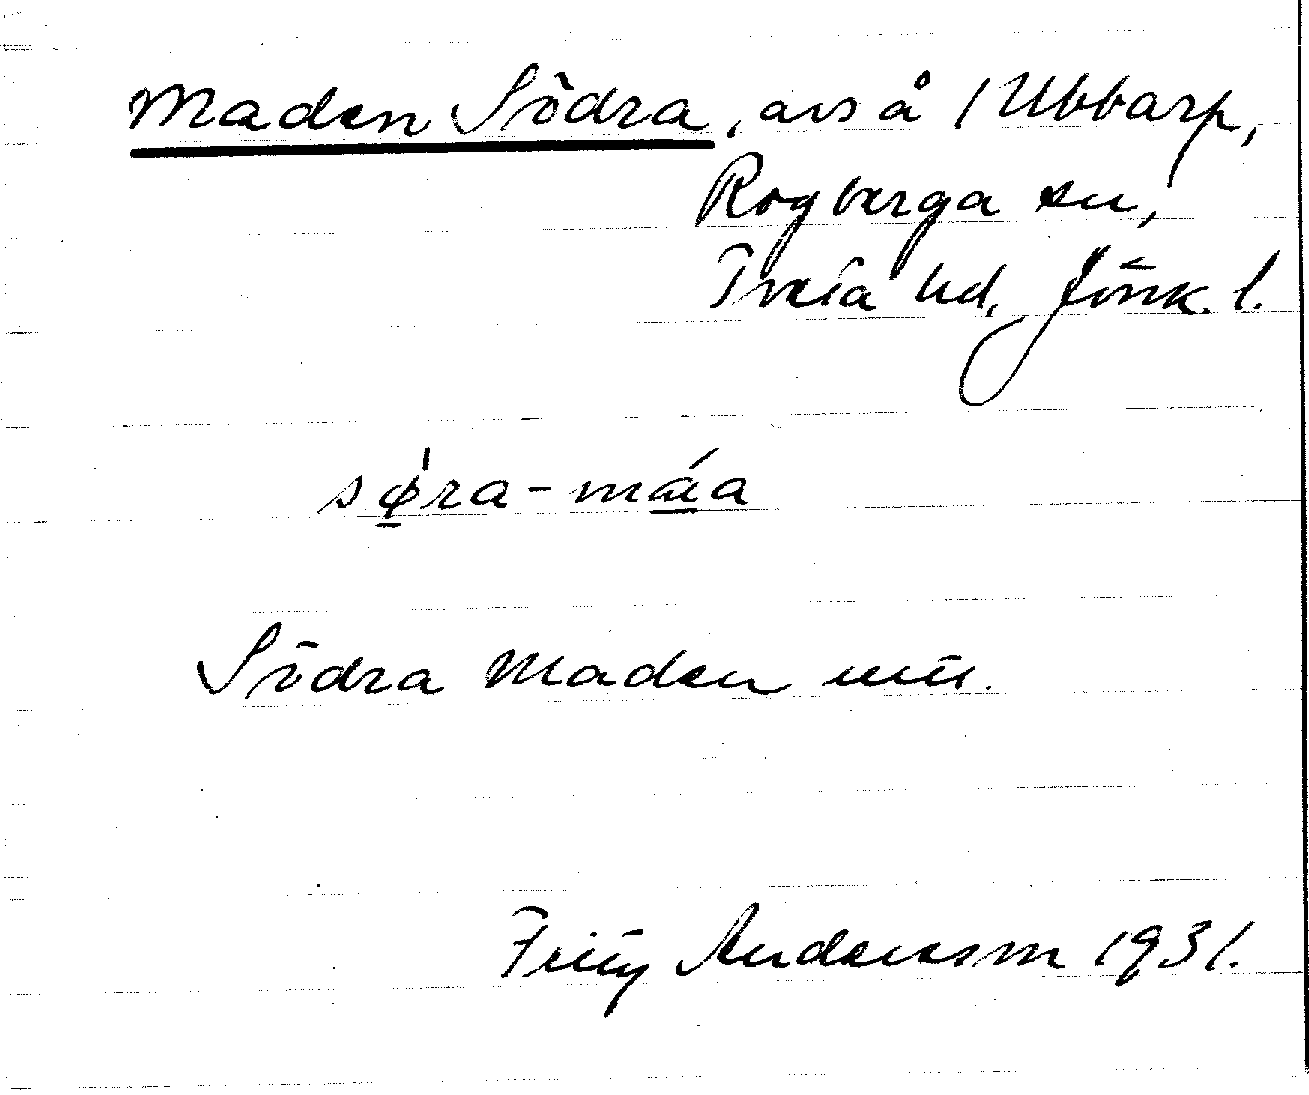 Maden Södra, avs å 1 Ubbarp,
Rogberga sn,
Tveta hd, Jönk. l.
sø̱̍ra-má̱a
Södra Maden
Andersson 1931.